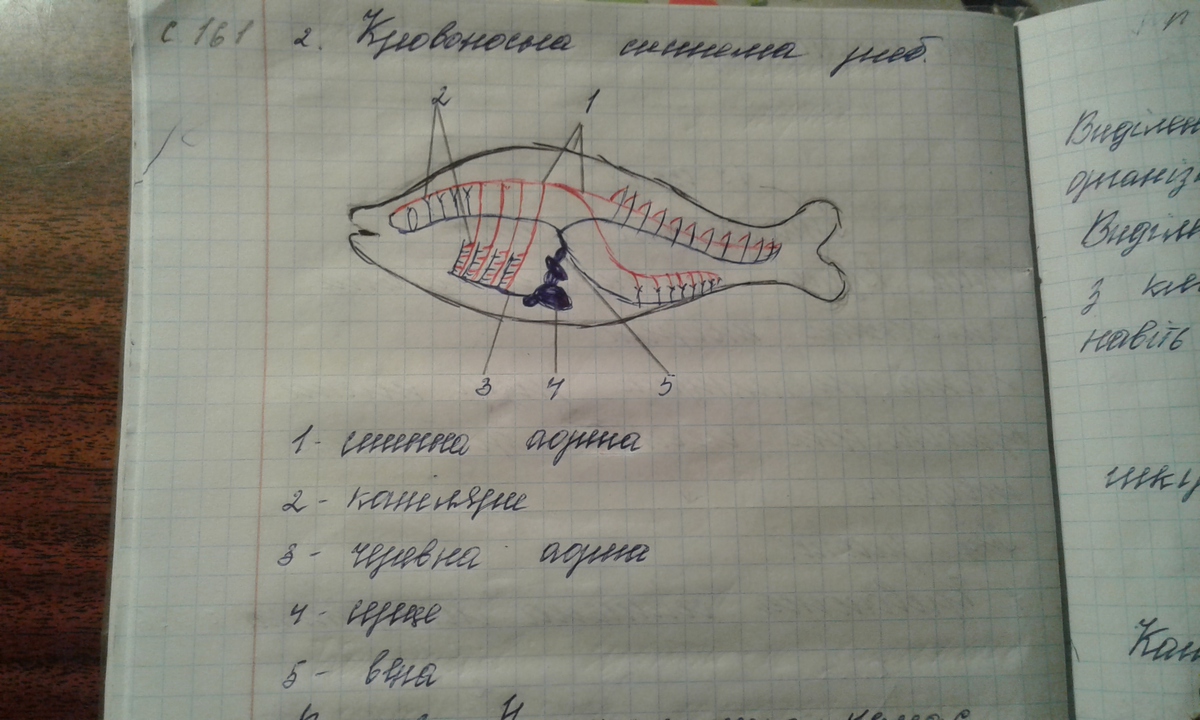 с 161 2. Кровоносна система риб.
2 1
3 4 5
1 - спинна аорта
2 - капіляри
3 - черевна аорта
4 - серце
5 - вена
Виділен
організ
Виділ
з кл
навіть
шкі
Кап